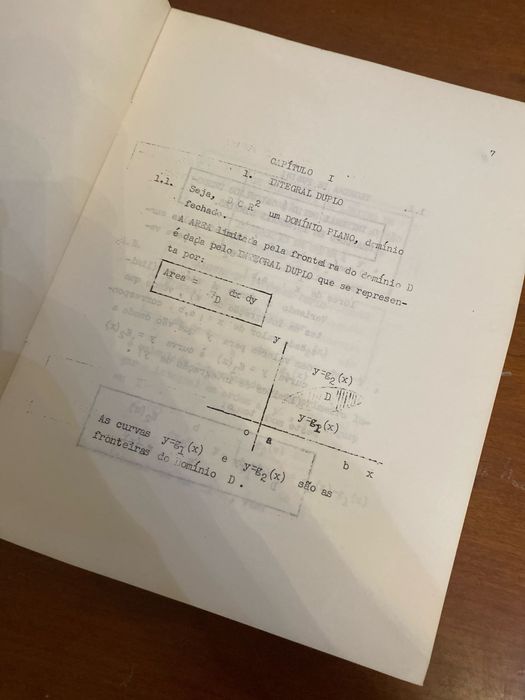 7
CAPÍTULO I
1. INTEGRAL DUPLO
1.1. Seja, D C R² um DOMÍNIO PLANO, domínio
fechado.
A AREA limitada pela fronteira do domínio D
é dada pelo INTEGRAL DUPLO que se represen-
ta por:
Area = D dx dy
y
y=g₂(x)
D
y=g₁(x)
o a b x
As curvas y=g₁(x) e y=g₂(x) são as
fronteiras do Domínio D.